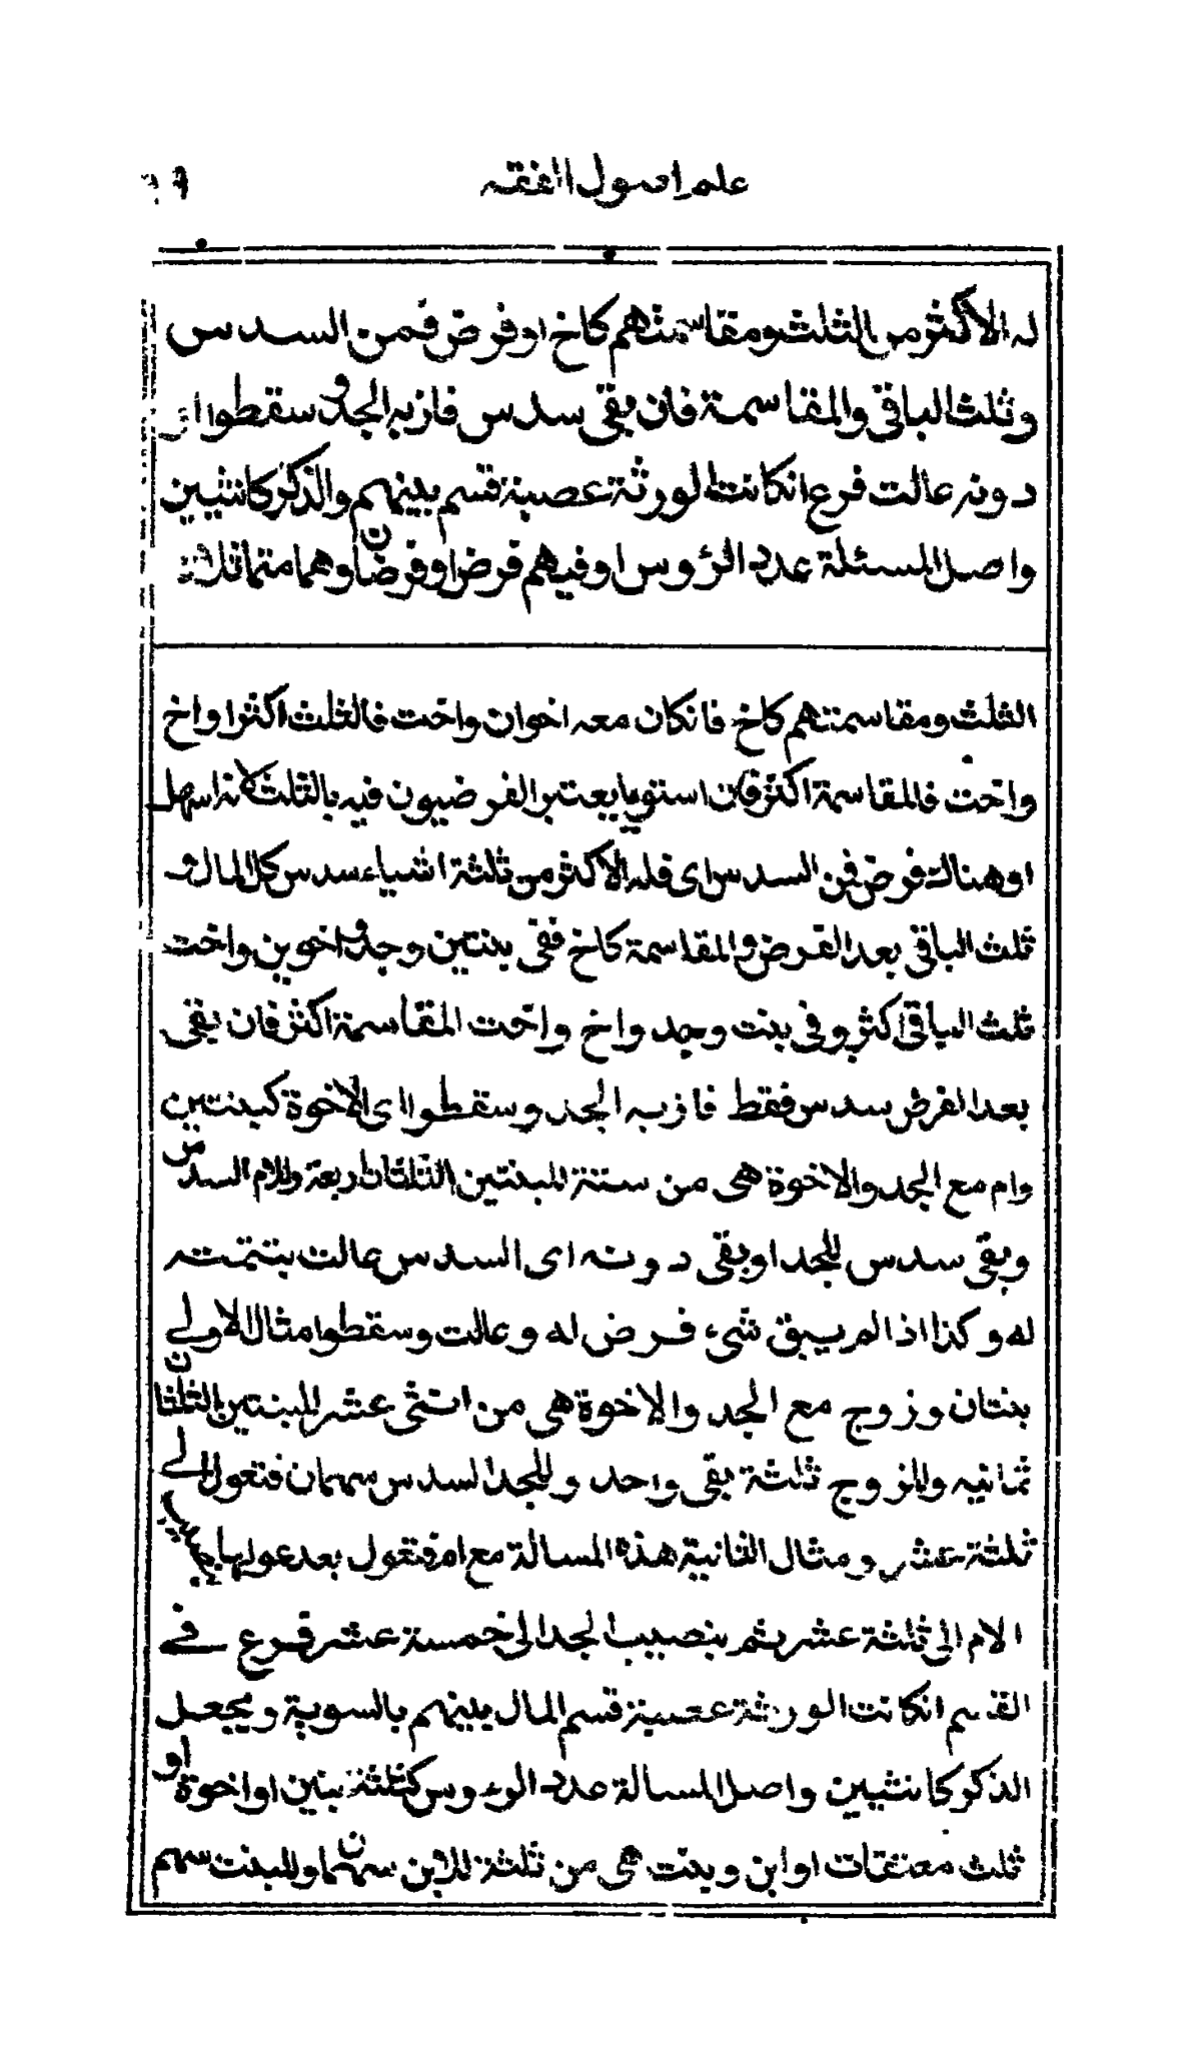 علم اصول الفقه
له الاكثر من الثلث ومقاسمتهم كاخ او فرض فمن السدس
وثلث الباقى والمقاسمة فان بقى سدس فاز به الجد وسقطوا او
دونه عالت فرع انكانت الورثة عصبة قسم بينهم والذكر كانثيين
واصل المسئلة عدد الرؤوس او فيهم فرض او فرضان وهما متماثلان
الثلث ومقاسمتهم كاخ فانكان معه اخوان واخت فالثلث اكثر او اخ
واخت فالمقاسمة اكثر فان استويا يعتبر الفرضيون فيه بالثلث لانه اسهل
او هناك فرض فمن السدس اى فله الاكثر من ثلثة اشياء سدس كل المال و
ثلث الباقى بعد الفرض والمقاسمة كاخ ففى بنتين وجد واخوين واخت
ثلث الباقى اكثر وفى بنت وجد واخ واخت المقاسمة اكثر فان بقى
بعد الفرض سدس فقط فاز به الجد وسقطوا اى الاخوة كبنتين
وام مع الجد والاخوة هى من ستة للبنتين الثلثان اربعة وللام السدس
وبقى سدس للجد او بقى دونه اى السدس عالت بتتمته
له وكذا اذا لم يبق شىء فرض له وعالت وسقطوا مثال الاولى
بنتان وزوج مع الجد والاخوة هى من اثنى عشر للبنتين الثلثان
ثمانيه وللزوج ثلثة بقى واحد وللجد السدس سهمان فتعول الى
ثلثة عشر ومثال الثانية هذه المسالة مع ام فتعول بعد عولها بنصيب
الام الى ثلثة عشر ثم بنصيب الجد الى خمسة عشر فرع فى
القسم انكانت الورثة عصبة قسم المال بينهم بالسوية ويجعل
الذكر كانثيين واصل المسالة عدد الروءوس كثلثة بنين او اخوة او
ثلث معتقات او ابن وبنت هى من ثلثة للابن سهمان وللبنت سهم